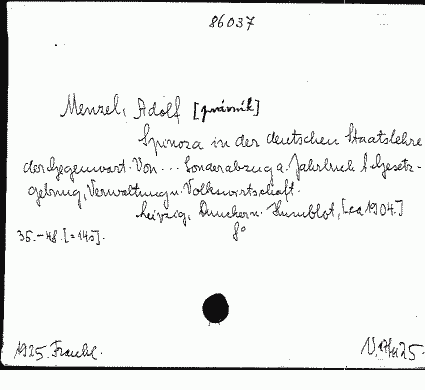 86037
Menzel, Adolf [právník]
Spinoza in der deutschen Staatslehre
der Gegenwart. Von ... Sonderabzug a. Jahrbuch f. Gesetz-
gebung, Verwaltung u. Volkswirtschaft.
Leipzig, Duncker u. Humblot, [ca 1904.]
8°
35.-48. [=14s].
1925. Frankl.